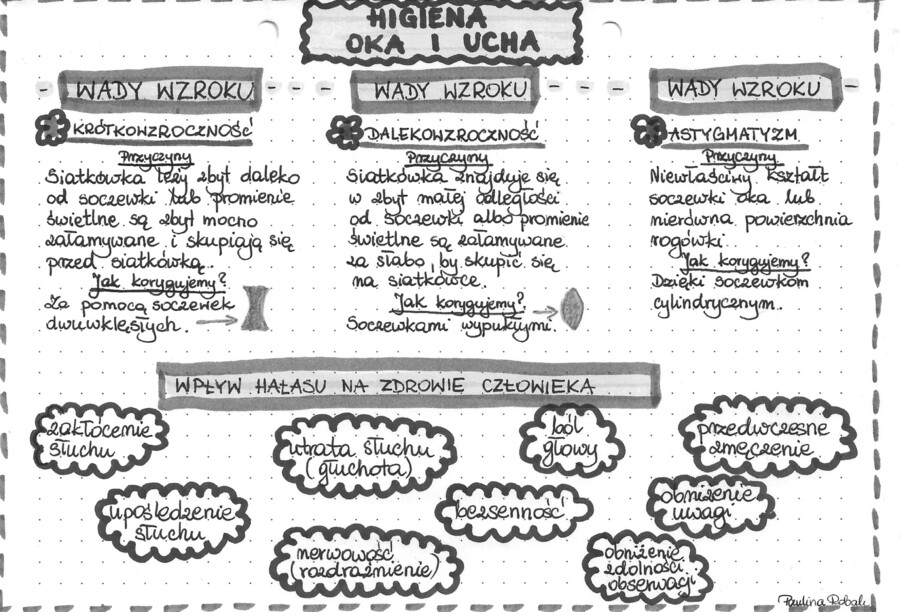 HIGIENA
OKA I UCHA
WADY WZROKU
KRÓTKOWZROCZNOŚĆ
Przyczyny
Siatkówka leży zbyt daleko
od soczewki lub promienie
świetlne są zbyt mocno
załamywane i skupiają się
przed siatkówką.
Jak korygujemy?
Za pomocą soczewek
dwuwklęsłych.
WADY WZROKU
DALEKOWZROCZNOŚĆ
Przyczyny
Siatkówka znajduje się
w zbyt małej odległości
od soczewki albo promienie
świetlne są załamywane
za słabo, by skupić się
na siatkówce.
Jak korygujemy?
Soczewkami wypukłymi.
WADY WZROKU
ASTYGMATYZM
Przyczyny
Niewłaściwy kształt
soczewki oka lub
nierówna powierzchnia
rogówki.
Jak korygujemy?
Dzięki soczewkom
cylindrycznym.
WPŁYW HAŁASU NA ZDROWIE CZŁOWIEKA
zakłócenie
słuchu
utrata słuchu
(głuchota)
ból
głowy
przedwczesne
zmęczenie
upośledzenie
słuchu
bezsenność
obniżenie
uwagi
nerwowość
(rozdrażnienie)
obniżenie
zdolności
obserwacji
Paulina